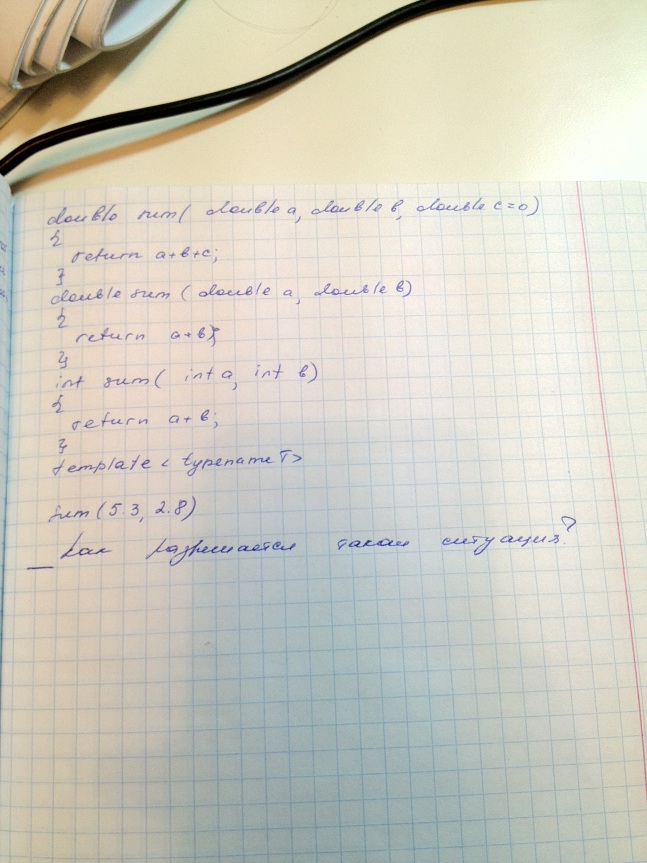 double sum( double a, double b, double c=0)
{
return a+b+c;
}
double sum ( double a, double b)
{
return a+b;
}
int sum( int a, int b)
{
return a+b;
}
template < typename T>
sum(5.3, 2.8)
_ Как разрешается такая ситуация?